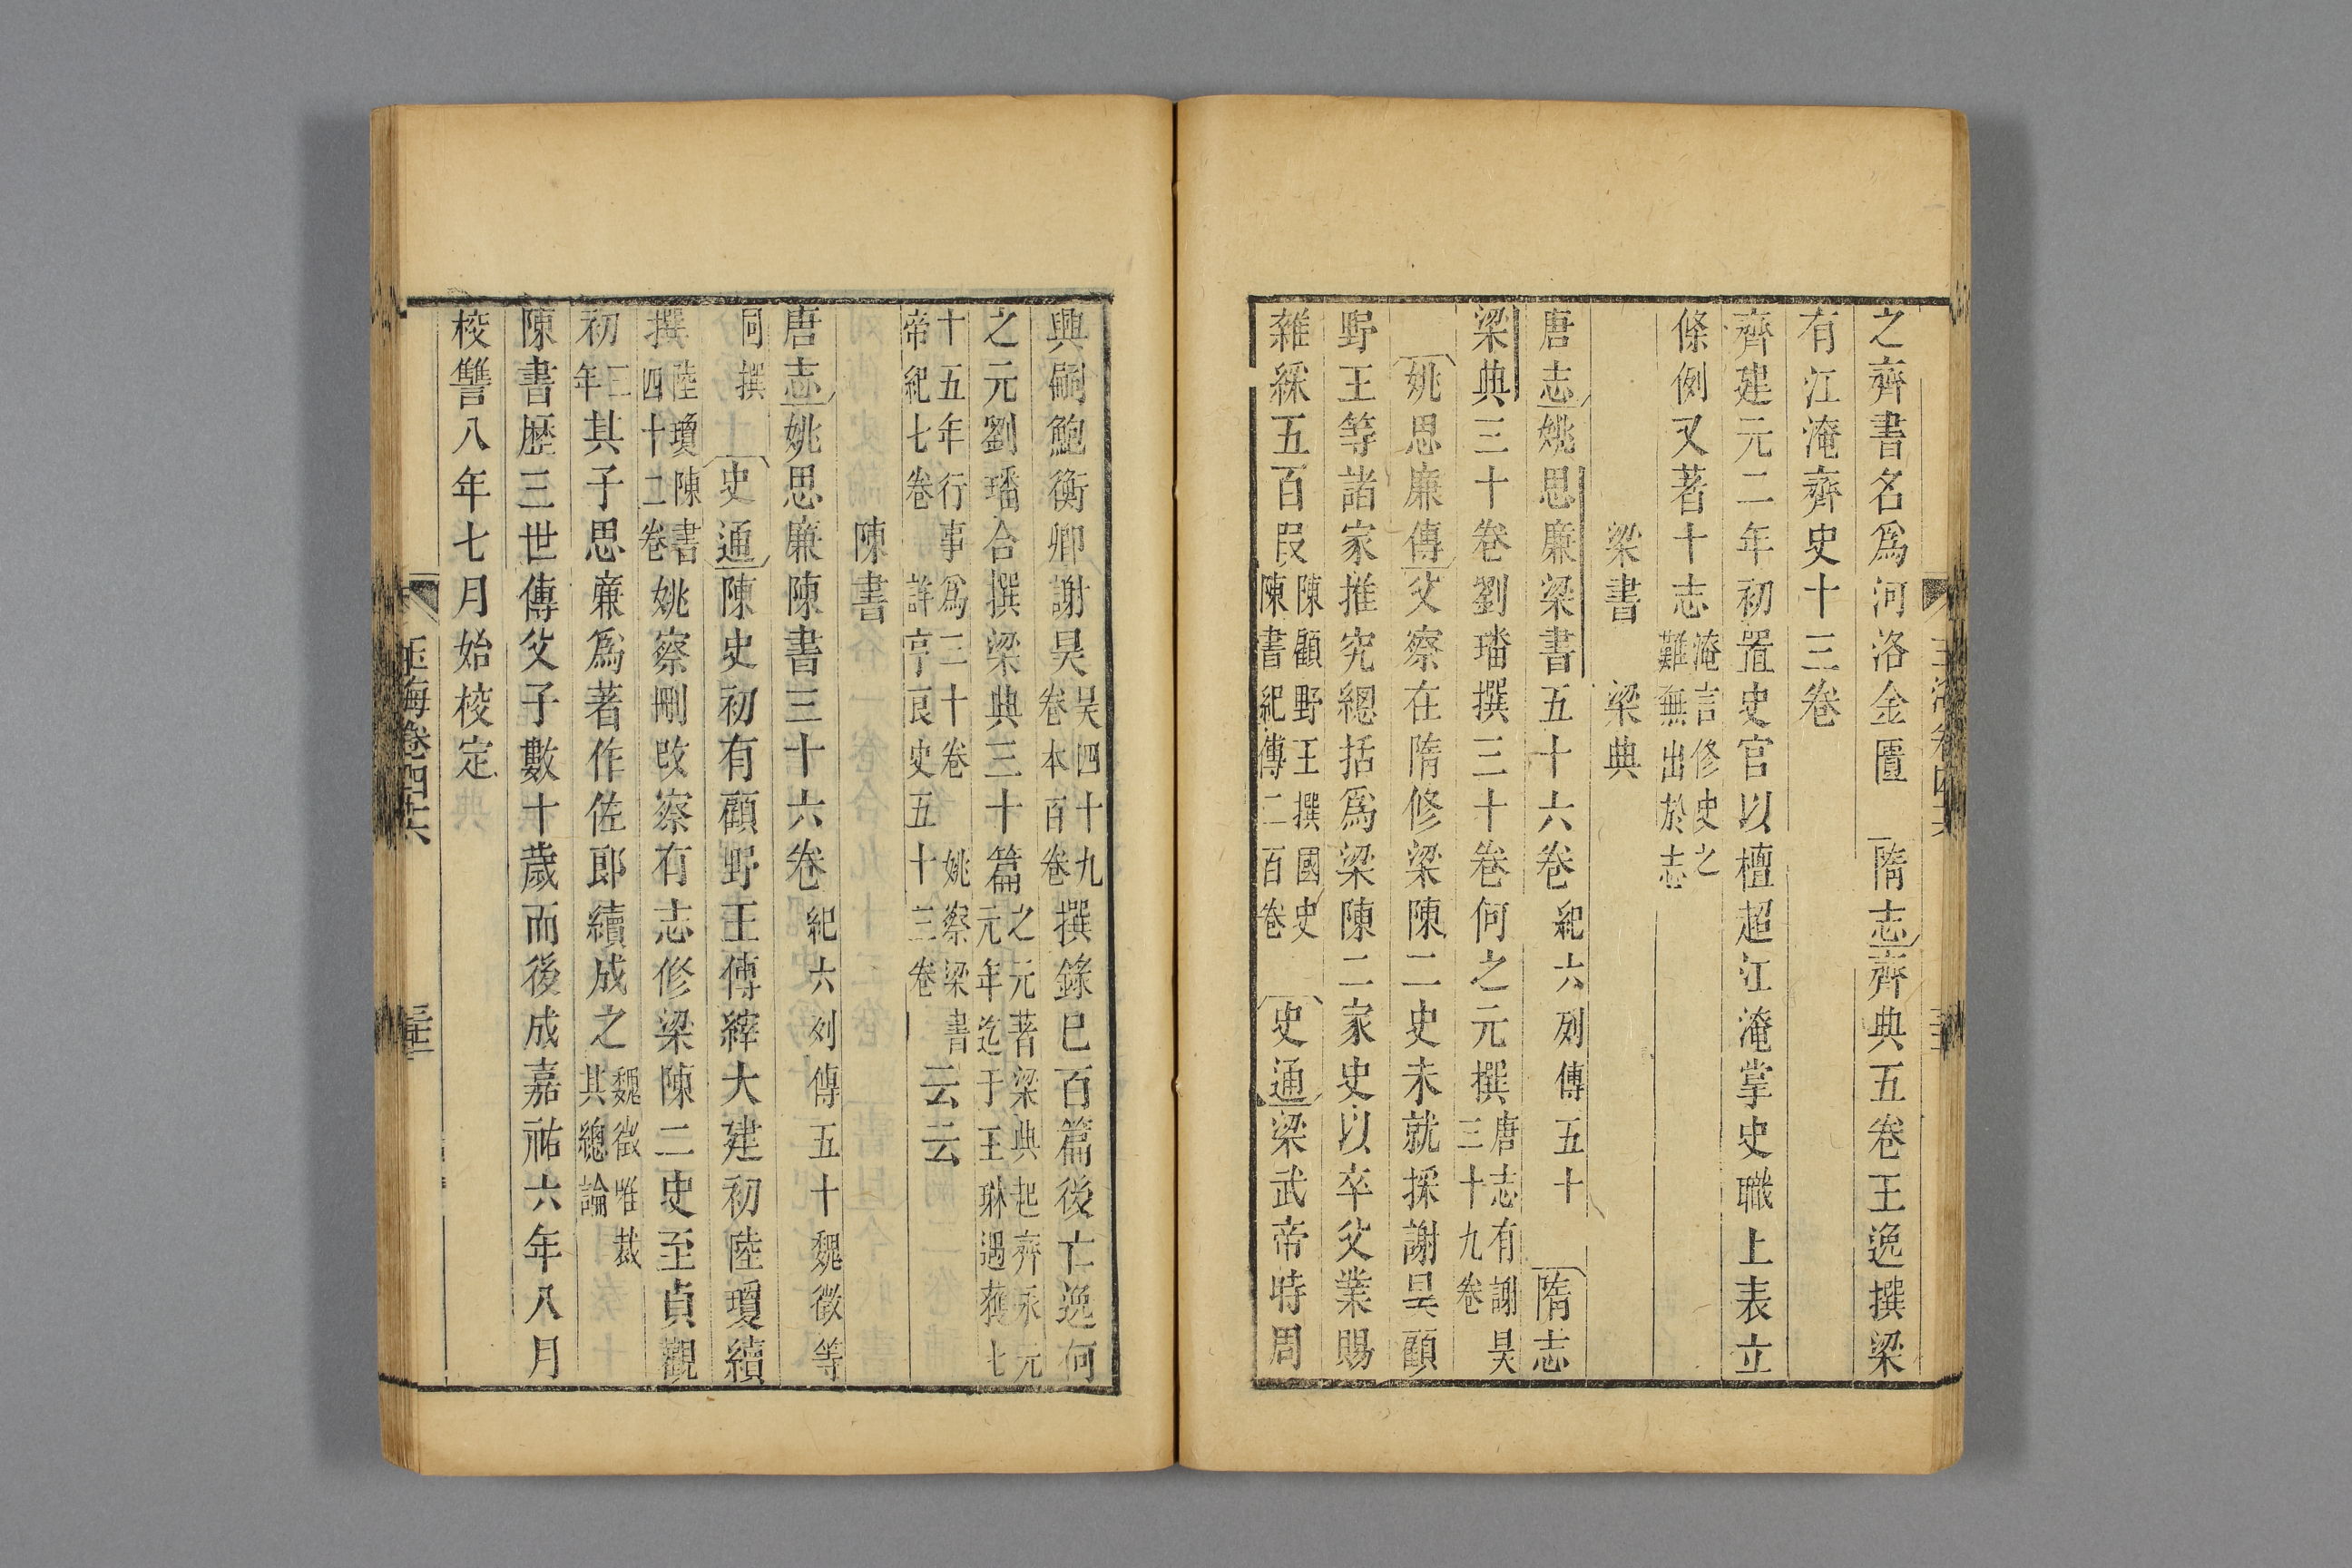 之齊書名爲河洛金匱　隋志齊典五卷王逸撰梁
有江淹齊史十三卷
齊建元二年初置史官以檀超江淹掌史職上表立
條例又著十志淹言修史之難無出於志
梁書　梁典
唐志姚思廉梁書五十六卷紀六列傳五十　隋志
梁典三十卷劉璠撰三十卷何之元撰唐志有謝昊三十九卷
姚思廉傳父察在隋修梁陳二史未就採謝昊顧
野王等諸家推究總括爲梁陳二家史以卒父業賜
雜綵五百段陳顧野王撰國史陳書紀傳二百卷　史通梁武帝時周
興嗣鮑衡卿謝昊吴四十九卷本百卷撰錄已百篇後亡逸何
之元劉璠合撰梁典三十篇之元著梁典起齊永元元年迄于王琳遇獲七
十五年行事爲三十卷　姚察梁書帝紀七卷　許亨梁史五十三卷云云
陳書
唐志姚思廉陳書三十六卷紀六列傳五十魏徵等
同撰　史通陳史初有顧野王傅縡大建初陸瓊續
撰陸瓊陳書四十二卷姚察刪改察有志修梁陳二史至貞觀
初三年其子思廉爲著作佐郎續成之魏徵唯裁其總論
陳書歷三世傳父子數十歲而後成嘉祐六年八月
校讐八年七月始校定
玉海卷四十六